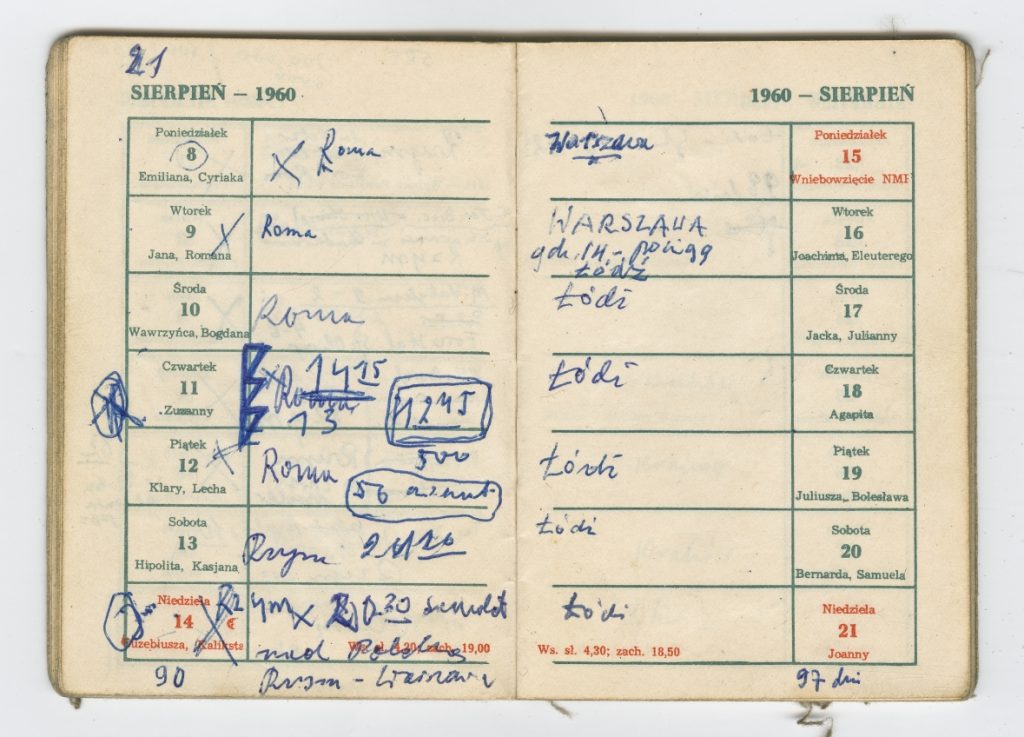 21
SIERPIEŃ – 1960
Poniedziałek
8
Emiliana, Cyriaka
X Roma
Wtorek
9 X
Jana, Romana
Roma
Środa
10
Wawrzyńca, Bogdana
Roma
Czwartek
11
Zuzanny
X Roma 14 15
13
1245
500
Piątek
12 X
Klary, Lecha
Roma
Sobota
13
Hipolita, Kasjana
Rzym
Niedziela
14
Euzebiusza, Kaliksta
Rzym X samolot
nad
Ws. sł. 4,20; zach. 19,00
Rzym –
90
1960 – SIERPIEŃ
Warszawa
Poniedziałek
15
Wniebowzięcie NMP
WARSZAWA
gdz. 14 – pociąg
Łódź
Wtorek
16
Joachima, Eleuterego
Łódź
Środa
17
Jacka, Julianny
Łódź
Czwartek
18
Agapita
Łódź
Piątek
19
Juliusza, Bolesława
Łódź
Sobota
20
Bernarda, Samuela
Łódź
Niedziela
21
Joanny
Ws. sł. 4,30; zach. 18,50
97 dni